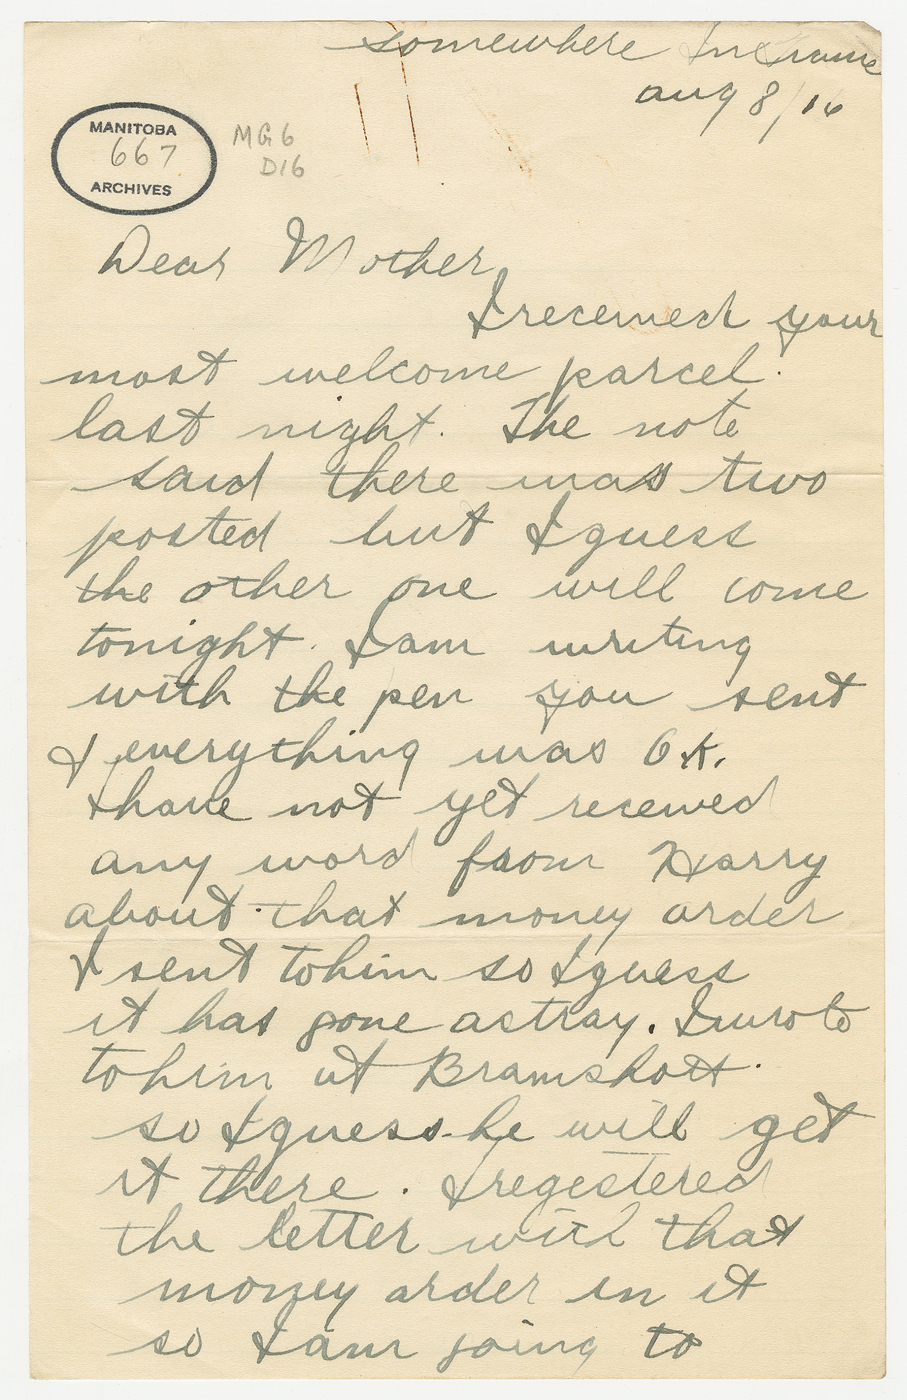 somewhere In France
Aug 8/16
MANITOBA
667
ARCHIVES
MG6
D16
Dear Mother
I received your
most welcome parcel.
last night. The note
said there was two
posted but I guess
the other one will come
tonight. I am writing
with the pen you sent
& everything was O.K.
I have not yet received
any word from Harry
about that money order
I sent to him so I guess
it has gone astray. I wrote
to him at Bramshott.
so I guess he will get
it there. I regestered
the letter with that
money order in it
so I am going to